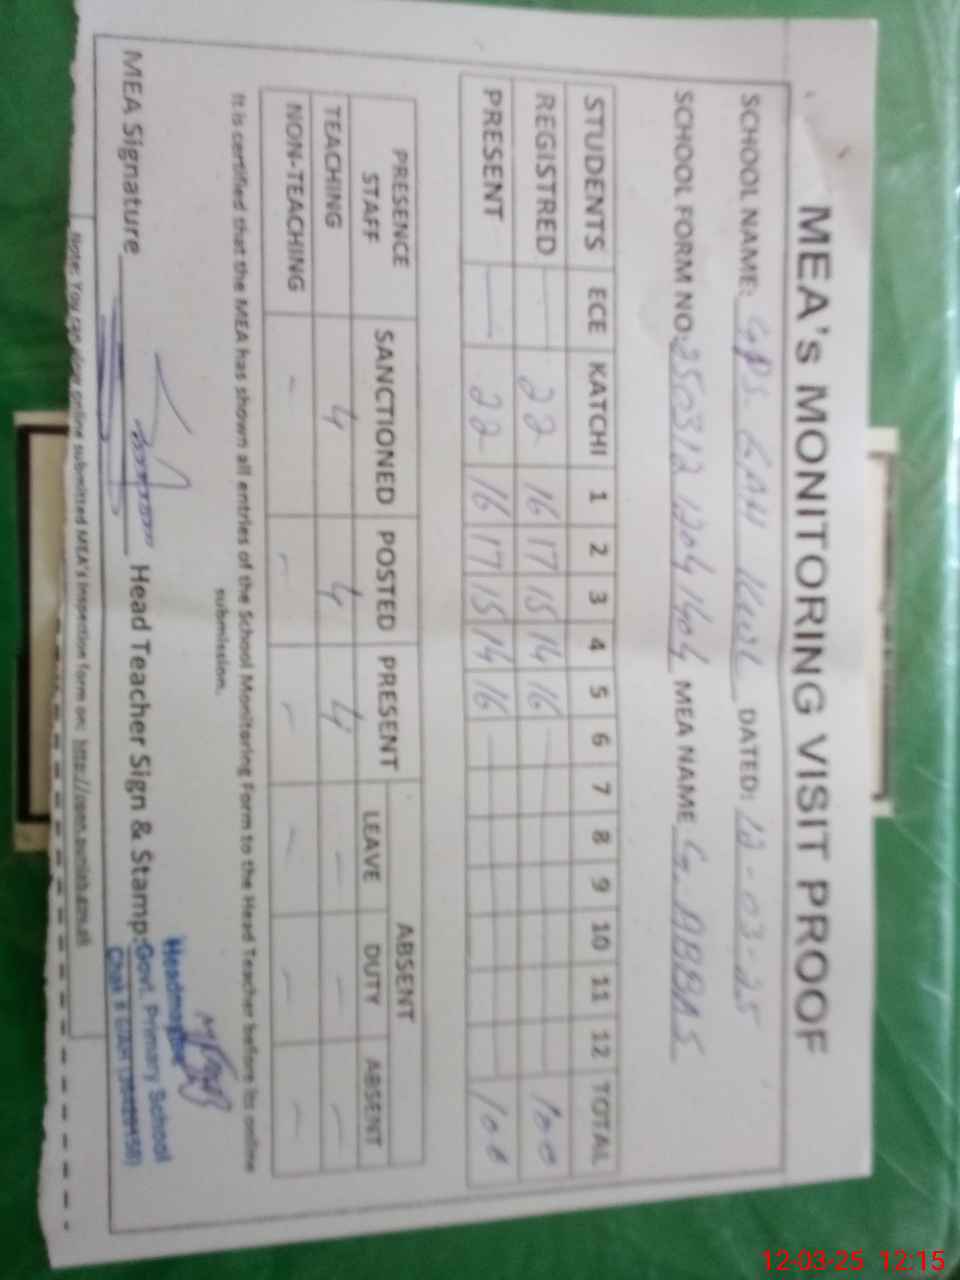 MEA's MONITORING VISIT PROOF
SCHOOL NAME: GPS DATED: 12-03-25
SCHOOL FORM NO: MEA NAME G. ABBAS
STUDENTS ECE KATCHI 1 2 3 4 5 6 7 8 9 10 11 12 TOTAL
REGISTRED — 22 16 17 15 14 16 — 100
PRESENT — 22 16 17 15 14 16 — 100
PRESENCE STAFF SANCTIONED POSTED PRESENT ABSENT
LEAVE DUTY ABSENT
TEACHING 4 4 4 - - -
NON-TEACHING - - - - - -
It is certified that the MEA has shown all entries of the School Monitoring Form to the Head Teacher before its online
submission.
MEA Signature Head Teacher Sign & Stamp:
Headmaster
Govt. Primary School
Note: You can view online submitted MEA's inspection form on: http://open.punjab.gov.pk
12-03-25 12:15